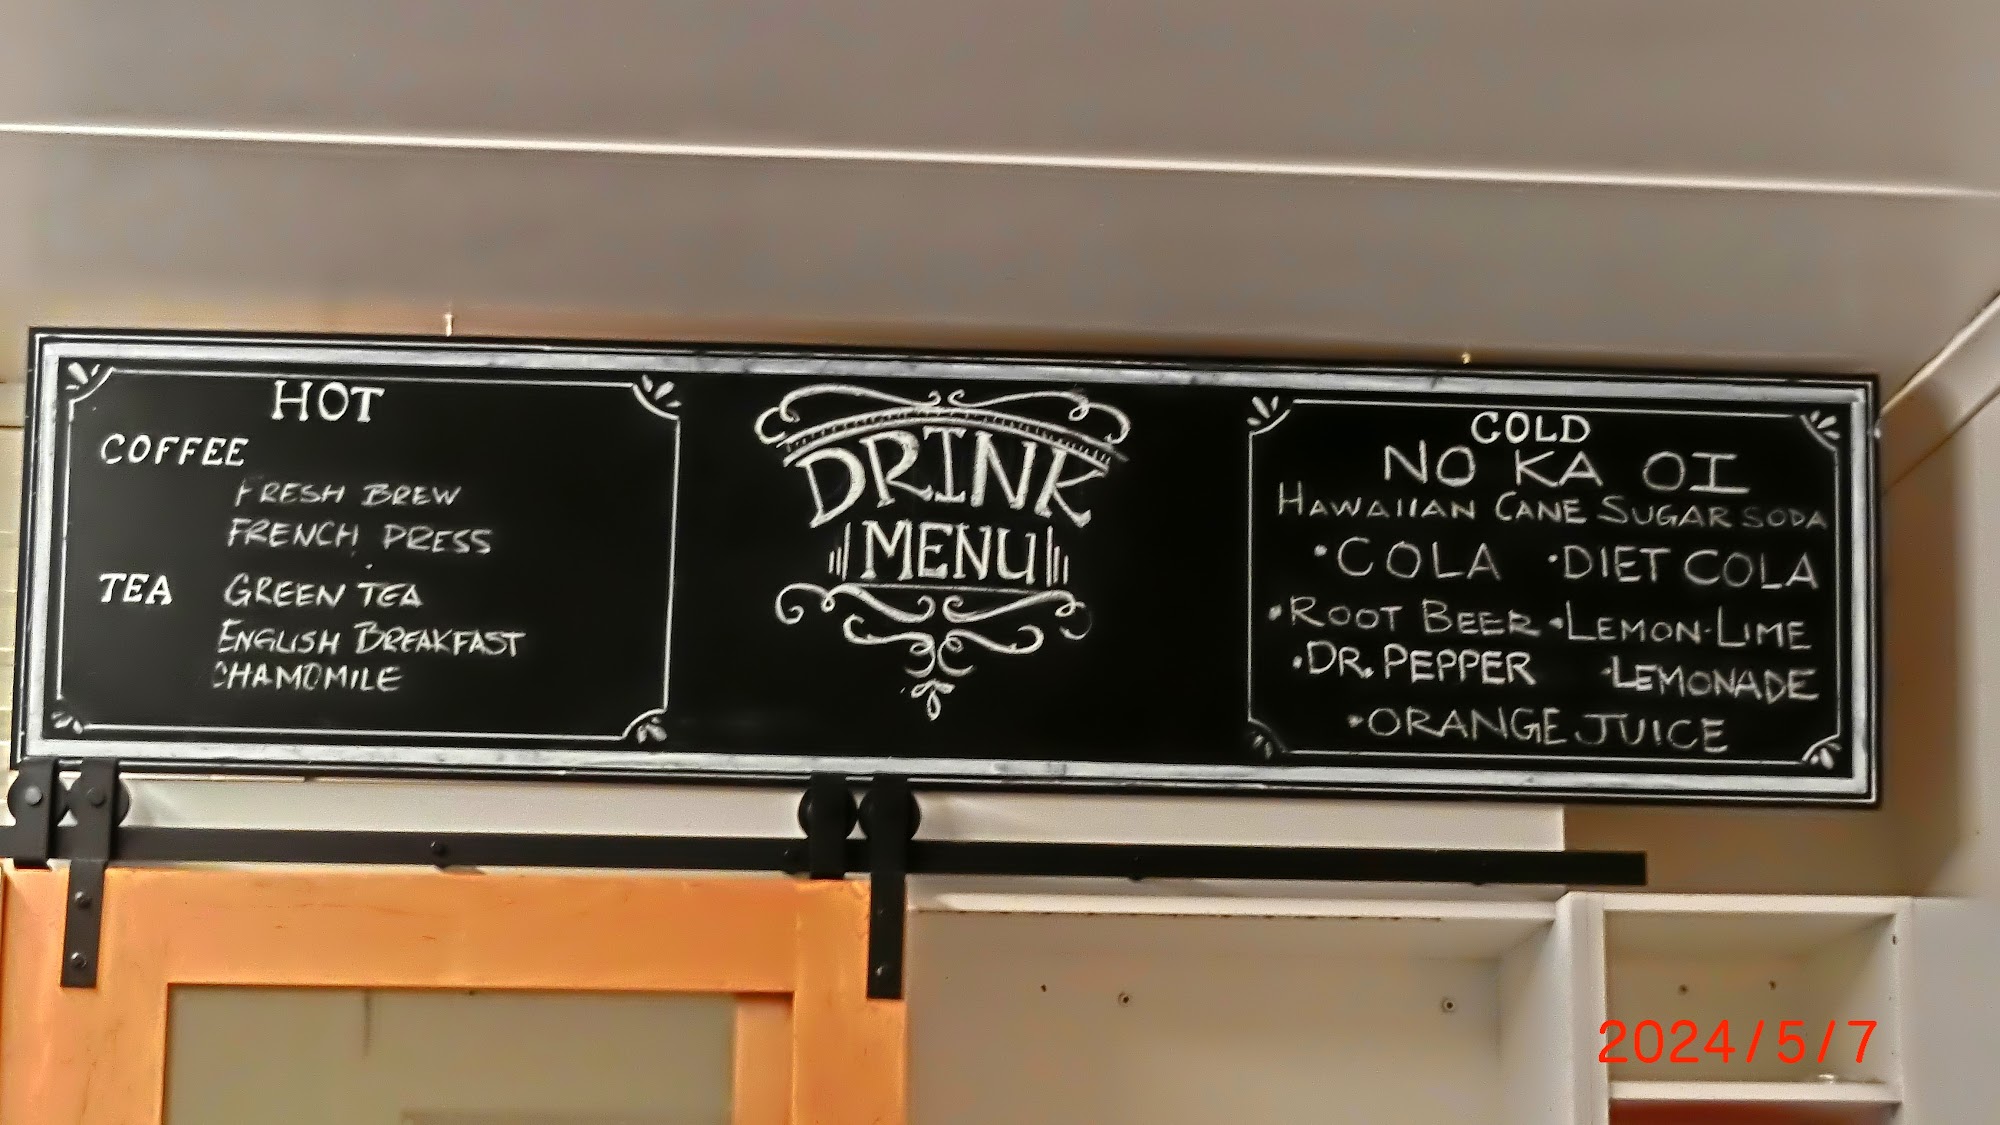 HOT
COFFEE
FRESH BREW
FRENCH PRESS
TEA GREEN TEA
ENGLISH BREAKFAST
CHAMOMILE
DRINK
MENU
COLD
NO KA OI
HAWAIIAN CANE SUGAR SODA
•COLA •DIET COLA
•ROOT BEER •LEMON-LIME
•DR. PEPPER •LEMONADE
•ORANGE JUICE
2024/5/7